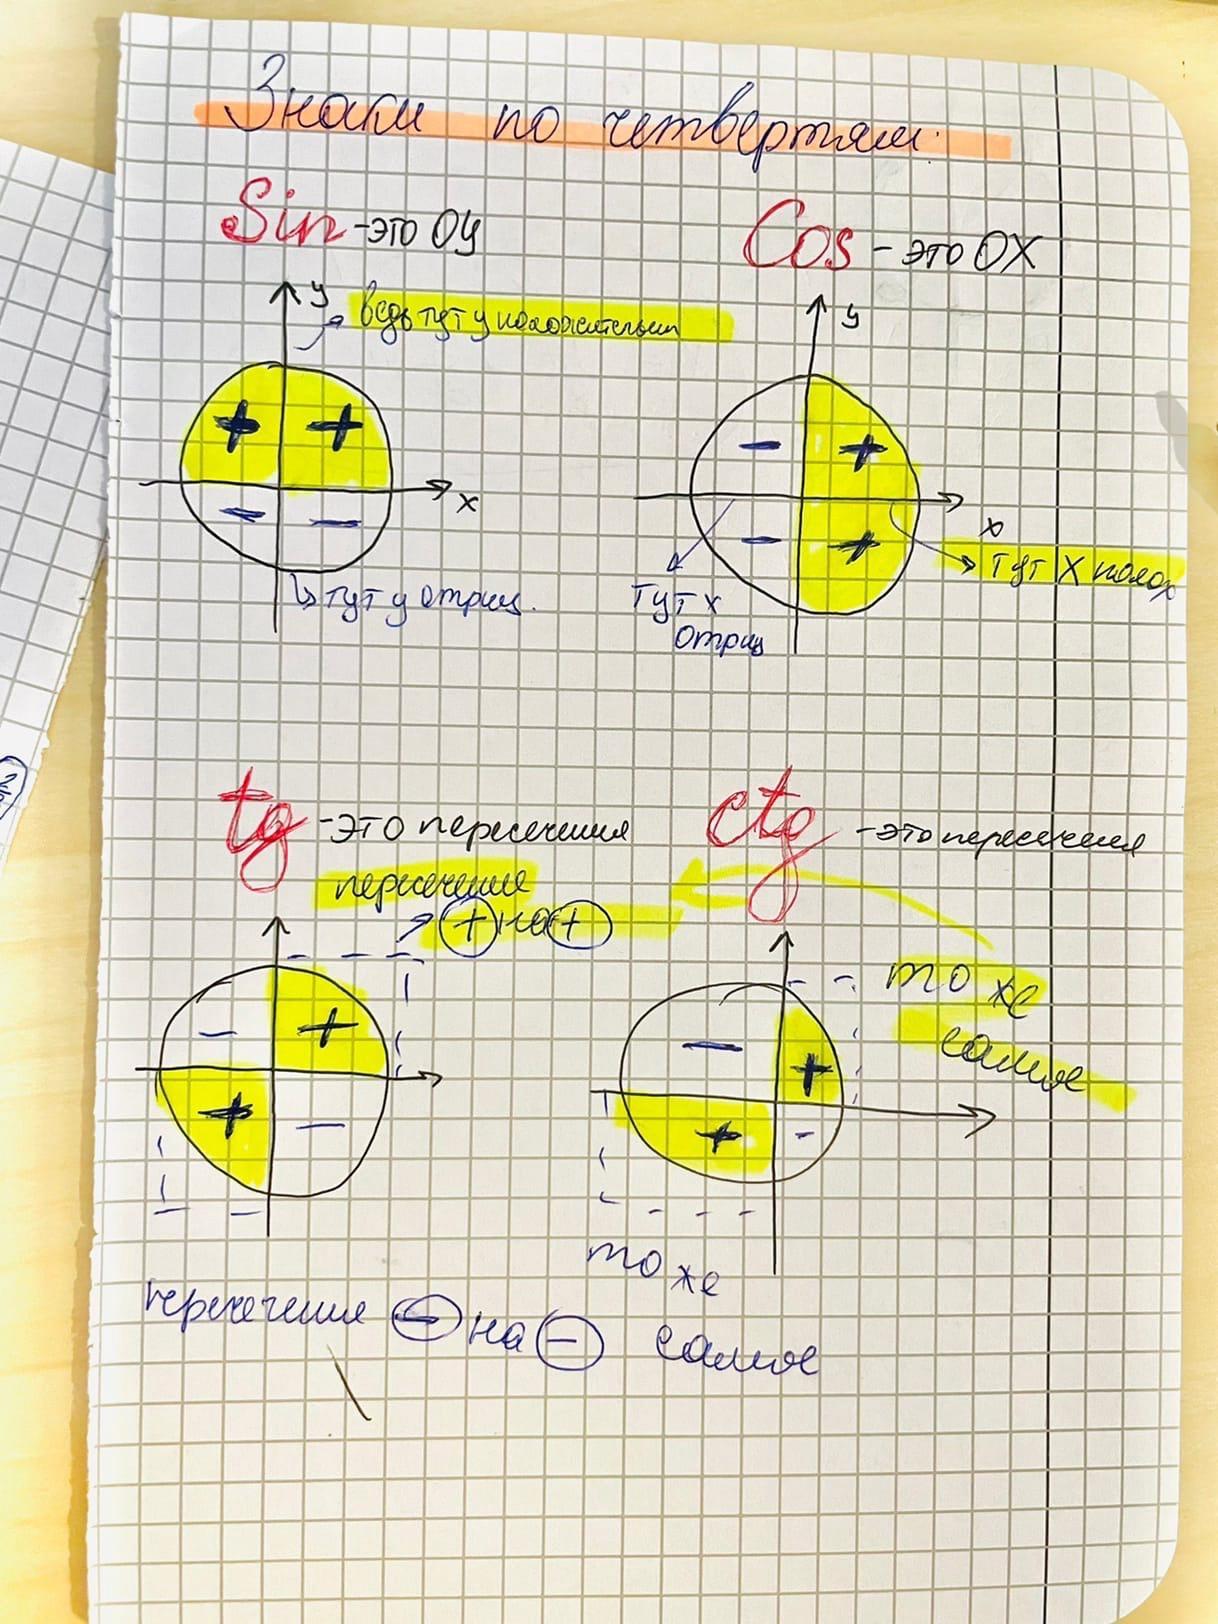 Знаки по четвертям.
Sin - это ОУ
Cos - это ОХ
y
ведь тут у положительн
y
+ +
- +
x
- -
- +
x
тут X полож
тут у отриц.
тут х
отриц
tg - это пересечения
ctg - это пересечения
пересечение
+ на +
то же
самое
- +
- +
+ -
+ -
то же
самое
пересечения - на -